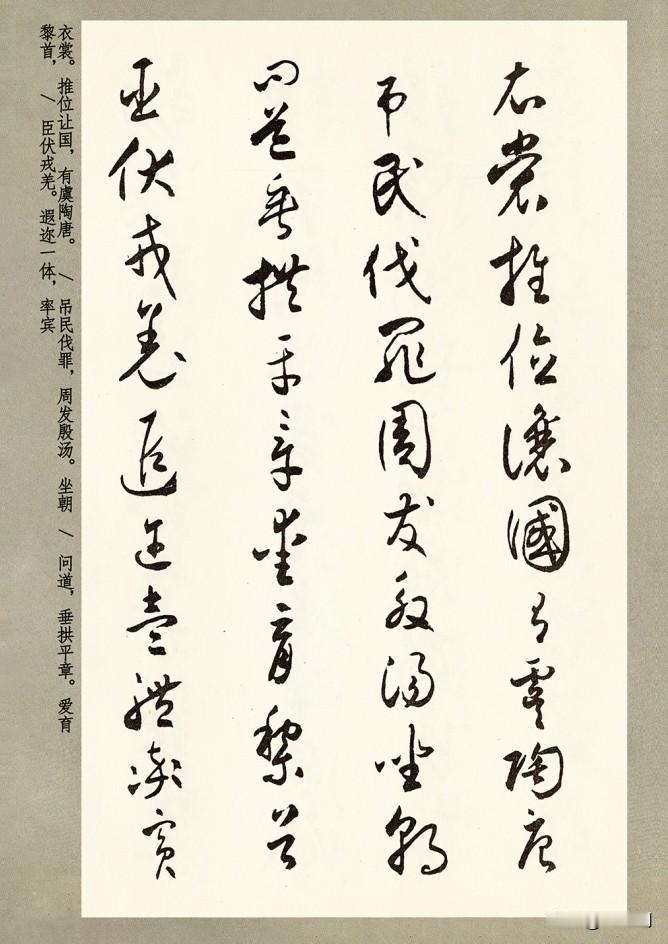 衣裳推位讓國有虞陶唐
吊民伐罪周發殷湯坐朝
問道垂拱平章愛育黎首
臣伏戎羌遐迩壹體率賓
衣裳。推位让国，有虞陶唐。/吊民伐罪，周发殷汤。坐朝/问道，垂拱平章。爱育
黎首，/臣伏戎羌。遐迩一体，率宾